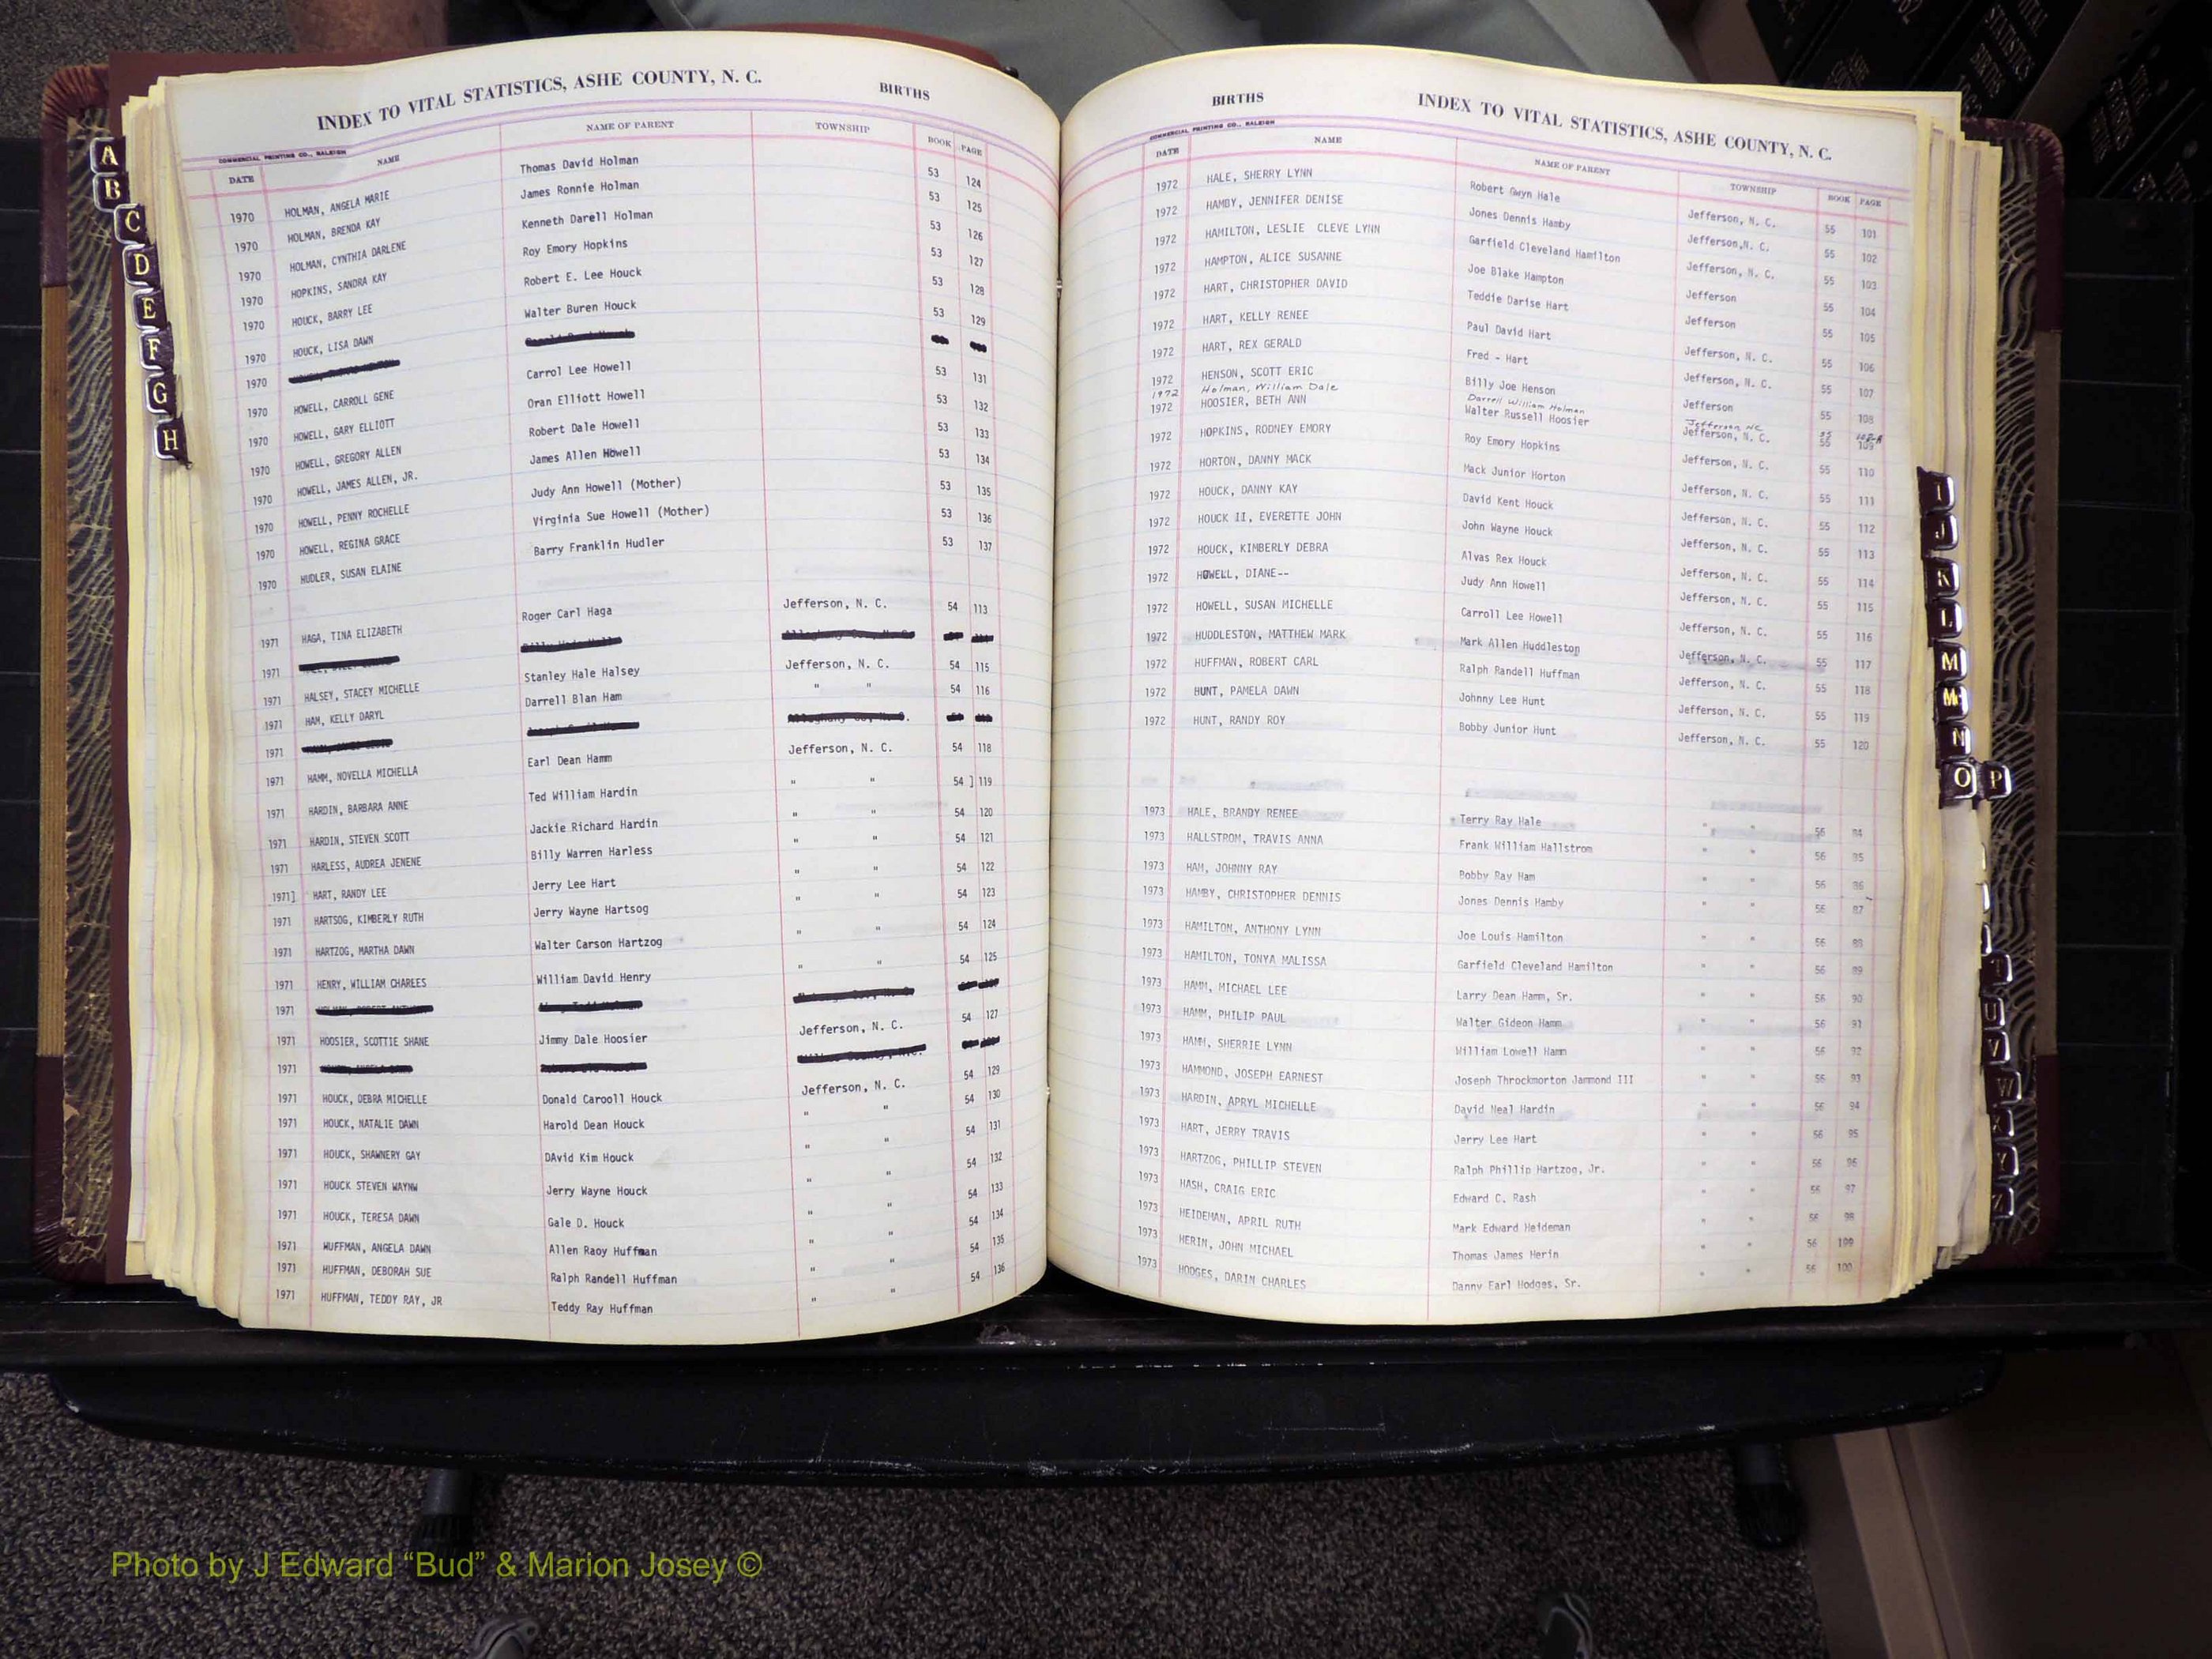 INDEX TO VITAL STATISTICS, ASHE COUNTY, N. C. BIRTHS
COMMERCIAL PRINTING CO., RALEIGH
DATE NAME NAME OF PARENT TOWNSHIP BOOK PAGE
1970 HOLMAN, ANGELA MARIE Thomas David Holman 53 124
1970 HOLMAN, BRENDA KAY James Ronnie Holman 53 125
1970 HOLMAN, CYNTHIA DARLENE Kenneth Darell Holman 53 126
1970 HOPKINS, SANDRA KAY Roy Emory Hopkins 53 127
1970 HOUCK, BARRY LEE Robert E. Lee Houck 53 128
1970 HOUCK, LISA DAWN Walter Buren Houck 53 129
1970
1970 HOWELL, CARROLL GENE Carrol Lee Howell 53 131
1970 HOWELL, GARY ELLIOTT Oran Elliott Howell 53 132
1970 HOWELL, GREGORY ALLEN Robert Dale Howell 53 133
1970 HOWELL, JAMES ALLEN, JR. James Allen Howell 53 134
1970 HOWELL, PENNY ROCHELLE Judy Ann Howell (Mother) 53 135
1970 HOWELL, REGINA GRACE Virginia Sue Howell (Mother) 53 136
1970 HUDLER, SUSAN ELAINE Barry Franklin Hudler 53 137
1971 HAGA, TINA ELIZABETH Roger Carl Haga Jefferson, N. C. 54 113
1971
1971 HALSEY, STACEY MICHELLE Stanley Hale Halsey Jefferson, N. C. 54 115
1971 HAM, KELLY DARYL Darrell Blan Ham " " 54 116
1971
1971 HAMM, NOVELLA MICHELLA Earl Dean Hamm Jefferson, N. C. 54 118
1971 HARDIN, BARBARA ANNE Ted William Hardin " " 54 ] 119
1971 HARDIN, STEVEN SCOTT Jackie Richard Hardin " " 54 120
1971 HARLESS, AUDREA JENENE Billy Warren Harless " " 54 121
1971] HART, RANDY LEE Jerry Lee Hart " " 54 122
1971 HARTSOG, KIMBERLY RUTH Jerry Wayne Hartsog " " 54 123
1971 HARTZOG, MARTHA DAWN Walter Carson Hartzog " " 54 124
1971 HENRY, WILLIAM CHARLES William David Henry " " 54 125
1971
1971 HOOSIER, SCOTTIE SHANE Jimmy Dale Hoosier Jefferson, N. C. 54 127
1971
1971 HOUCK, DEBRA MICHELLE Donald Carooll Houck Jefferson, N. C. 54 129
1971 HOUCK, NATALIE DAWN Harold Dean Houck " " 54 130
1971 HOUCK, SHAWNERY GAY DAvid Kim Houck " " 54 131
1971 HOUCK STEVEN WAYNW Jerry Wayne Houck " " 54 132
1971 HOUCK, TERESA DAWN Gale D. Houck " " 54 133
1971 HUFFMAN, ANGELA DAWN Allen Raoy Huffman " " 54 134
1971 HUFFMAN, DEBORAH SUE Ralph Randell Huffman " " 54 135
1971 HUFFMAN, TEDDY RAY, JR Teddy Ray Huffman " " 54 136
BIRTHS INDEX TO VITAL STATISTICS, ASHE COUNTY, N. C.
COMMERCIAL PRINTING CO., RALEIGH
DATE NAME NAME OF PARENT TOWNSHIP BOOK PAGE
1972 HALE, SHERRY LYNN Robert Gwyn Hale Jefferson, N. C. 55 101
1972 HAMBY, JENNIFER DENISE Jones Dennis Hamby Jefferson,N. C. 55 102
1972 HAMILTON, LESLIE CLEVE LYNN Garfield Cleveland Hamilton Jefferson, N. C. 55 103
1972 HAMPTON, ALICE SUSANNE Joe Blake Hampton Jefferson 55 104
1972 HART, CHRISTOPHER DAVID Teddie Darise Hart Jefferson 55 105
1972 HART, KELLY RENEE Paul David Hart Jefferson, N. C. 55 106
1972 HART, REX GERALD Fred - Hart Jefferson, N. C. 55 107
1972 HENSON, SCOTT ERIC Billy Joe Henson Jefferson 55 108
1972 Holman, William Dale Darrell William Holman Jefferson, NC 55
1972 HOOSIER, BETH ANN Walter Russell Hoosier Jefferson, N. C. 55 109
1972 HOPKINS, RODNEY EMORY Roy Emory Hopkins Jefferson, N. C. 55 110
1972 HORTON, DANNY MACK Mack Junior Horton Jefferson, N. C. 55 111
1972 HOUCK, DANNY KAY David Kent Houck Jefferson, N. C. 55 112
1972 HOUCK II, EVERETTE JOHN John Wayne Houck Jefferson, N. C. 55 113
1972 HOUCK, KIMBERLY DEBRA Alvas Rex Houck Jefferson, N. C. 55 114
1972 HOWELL, DIANE-- Judy Ann Howell Jefferson, N. C. 55 115
1972 HOWELL, SUSAN MICHELLE Carroll Lee Howell Jefferson, N. C. 55 116
1972 HUDDLESTON, MATTHEW MARK Mark Allen Huddleston Jefferson, N. C. 55 117
1972 HUFFMAN, ROBERT CARL Ralph Randell Huffman Jefferson, N. C. 55 118
1972 HUNT, PAMELA DAWN Johnny Lee Hunt Jefferson, N. C. 55 119
1972 HUNT, RANDY ROY Bobby Junior Hunt Jefferson, N. C. 55 120
1973 HALE, BRANDY RENEE Terry Ray Hale " " 56 84
1973 HALLSTROM, TRAVIS ANNA Frank William Hallstrom " " 56 85
1973 HAM, JOHNNY RAY Bobby Ray Ham " " 56 86
1973 HAMBY, CHRISTOPHER DENNIS Jones Dennis Hamby " " 56 87
1973 HAMILTON, ANTHONY LYNN Joe Louis Hamilton " " 56 88
1973 HAMILTON, TONYA MALISSA Garfield Cleveland Hamilton " " 56 89
1973 HAMM, MICHAEL LEE Larry Dean Hamm, Sr. " " 56 90
1973 HAMM, PHILIP PAUL Walter Gideon Hamm " " 56 91
1973 HAMM, SHERRIE LYNN William Lowell Hamm " " 56 92
1973 HAMMOND, JOSEPH EARNEST Joseph Throckmorton Jammond III " " 56 93
1973 HARDIN, APRYL MICHELLE David Neal Hardin " " 56 94
1973 HART, JERRY TRAVIS Jerry Lee Hart " " 56 95
1973 HARTZOG, PHILLIP STEVEN Ralph Phillip Hartzog, Jr. " " 56 96
1973 HASH, CRAIG ERIC Edward C. Rash " " 56 97
1973 HEIDEMAN, APRIL RUTH Mark Edward Heideman " " 56 98
1973 HERIN, JOHN MICHAEL Thomas James Herin " " 56 199
1973 HODGES, DARIN CHARLES Danny Earl Hodges, Sr. " " 56 100
A
B
C
D
E
F
G
H
I
J
K
L
M
Mc
N
O P
T
U
V
W
X
Y
Z
VITAL
STATISTICS
BIRTHS
Photo by J Edward “Bud” & Marion Josey ©